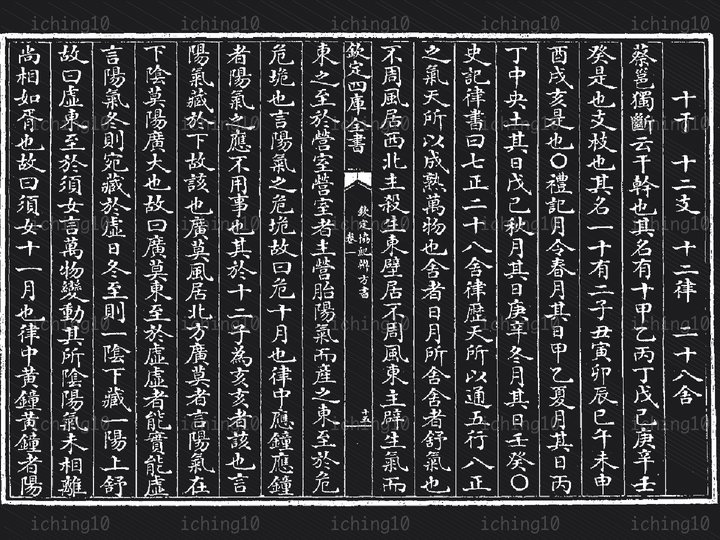 十干 十二支 十二律 二十八舍
蔡邕獨斷云干幹也其名有十甲乙丙丁戊己庚辛壬
癸是也支枝也其名一十有二子丑寅卯辰巳午未申
酉戌亥是也〇禮記月令春月其日甲乙夏月其日丙
丁中央土其日戊己秋月其日庚辛冬月其日壬癸〇
史記律書曰七正二十八舍律歷天所以通五行八正
之氣天所以成熟萬物也舍者日月所舍舍者舒氣也
不周風居西北主殺生東壁居不周風東主辟生氣而
欽定四庫全書
欽定協紀辨方書
卷一
十五
東之至於營室營室者主營胎陽氣而產之東至於危
危垝也言陽氣之危垝故曰危十月也律中應鐘應鐘
者陽氣之應不用事也其於十二子為亥亥者該也言
陽氣藏於下故該也廣莫風居北方廣莫者言陽氣在
下陰莫陽廣大也故曰廣莫東至於虛虛者能實能虛
言陽氣冬則宛藏於虛日冬至則一陰下藏一陽上舒
故曰虛東至於須女言萬物變動其所陰陽氣未相離
尚相如胥也故曰須女十一月也律中黃鐘黃鐘者陽
iching10